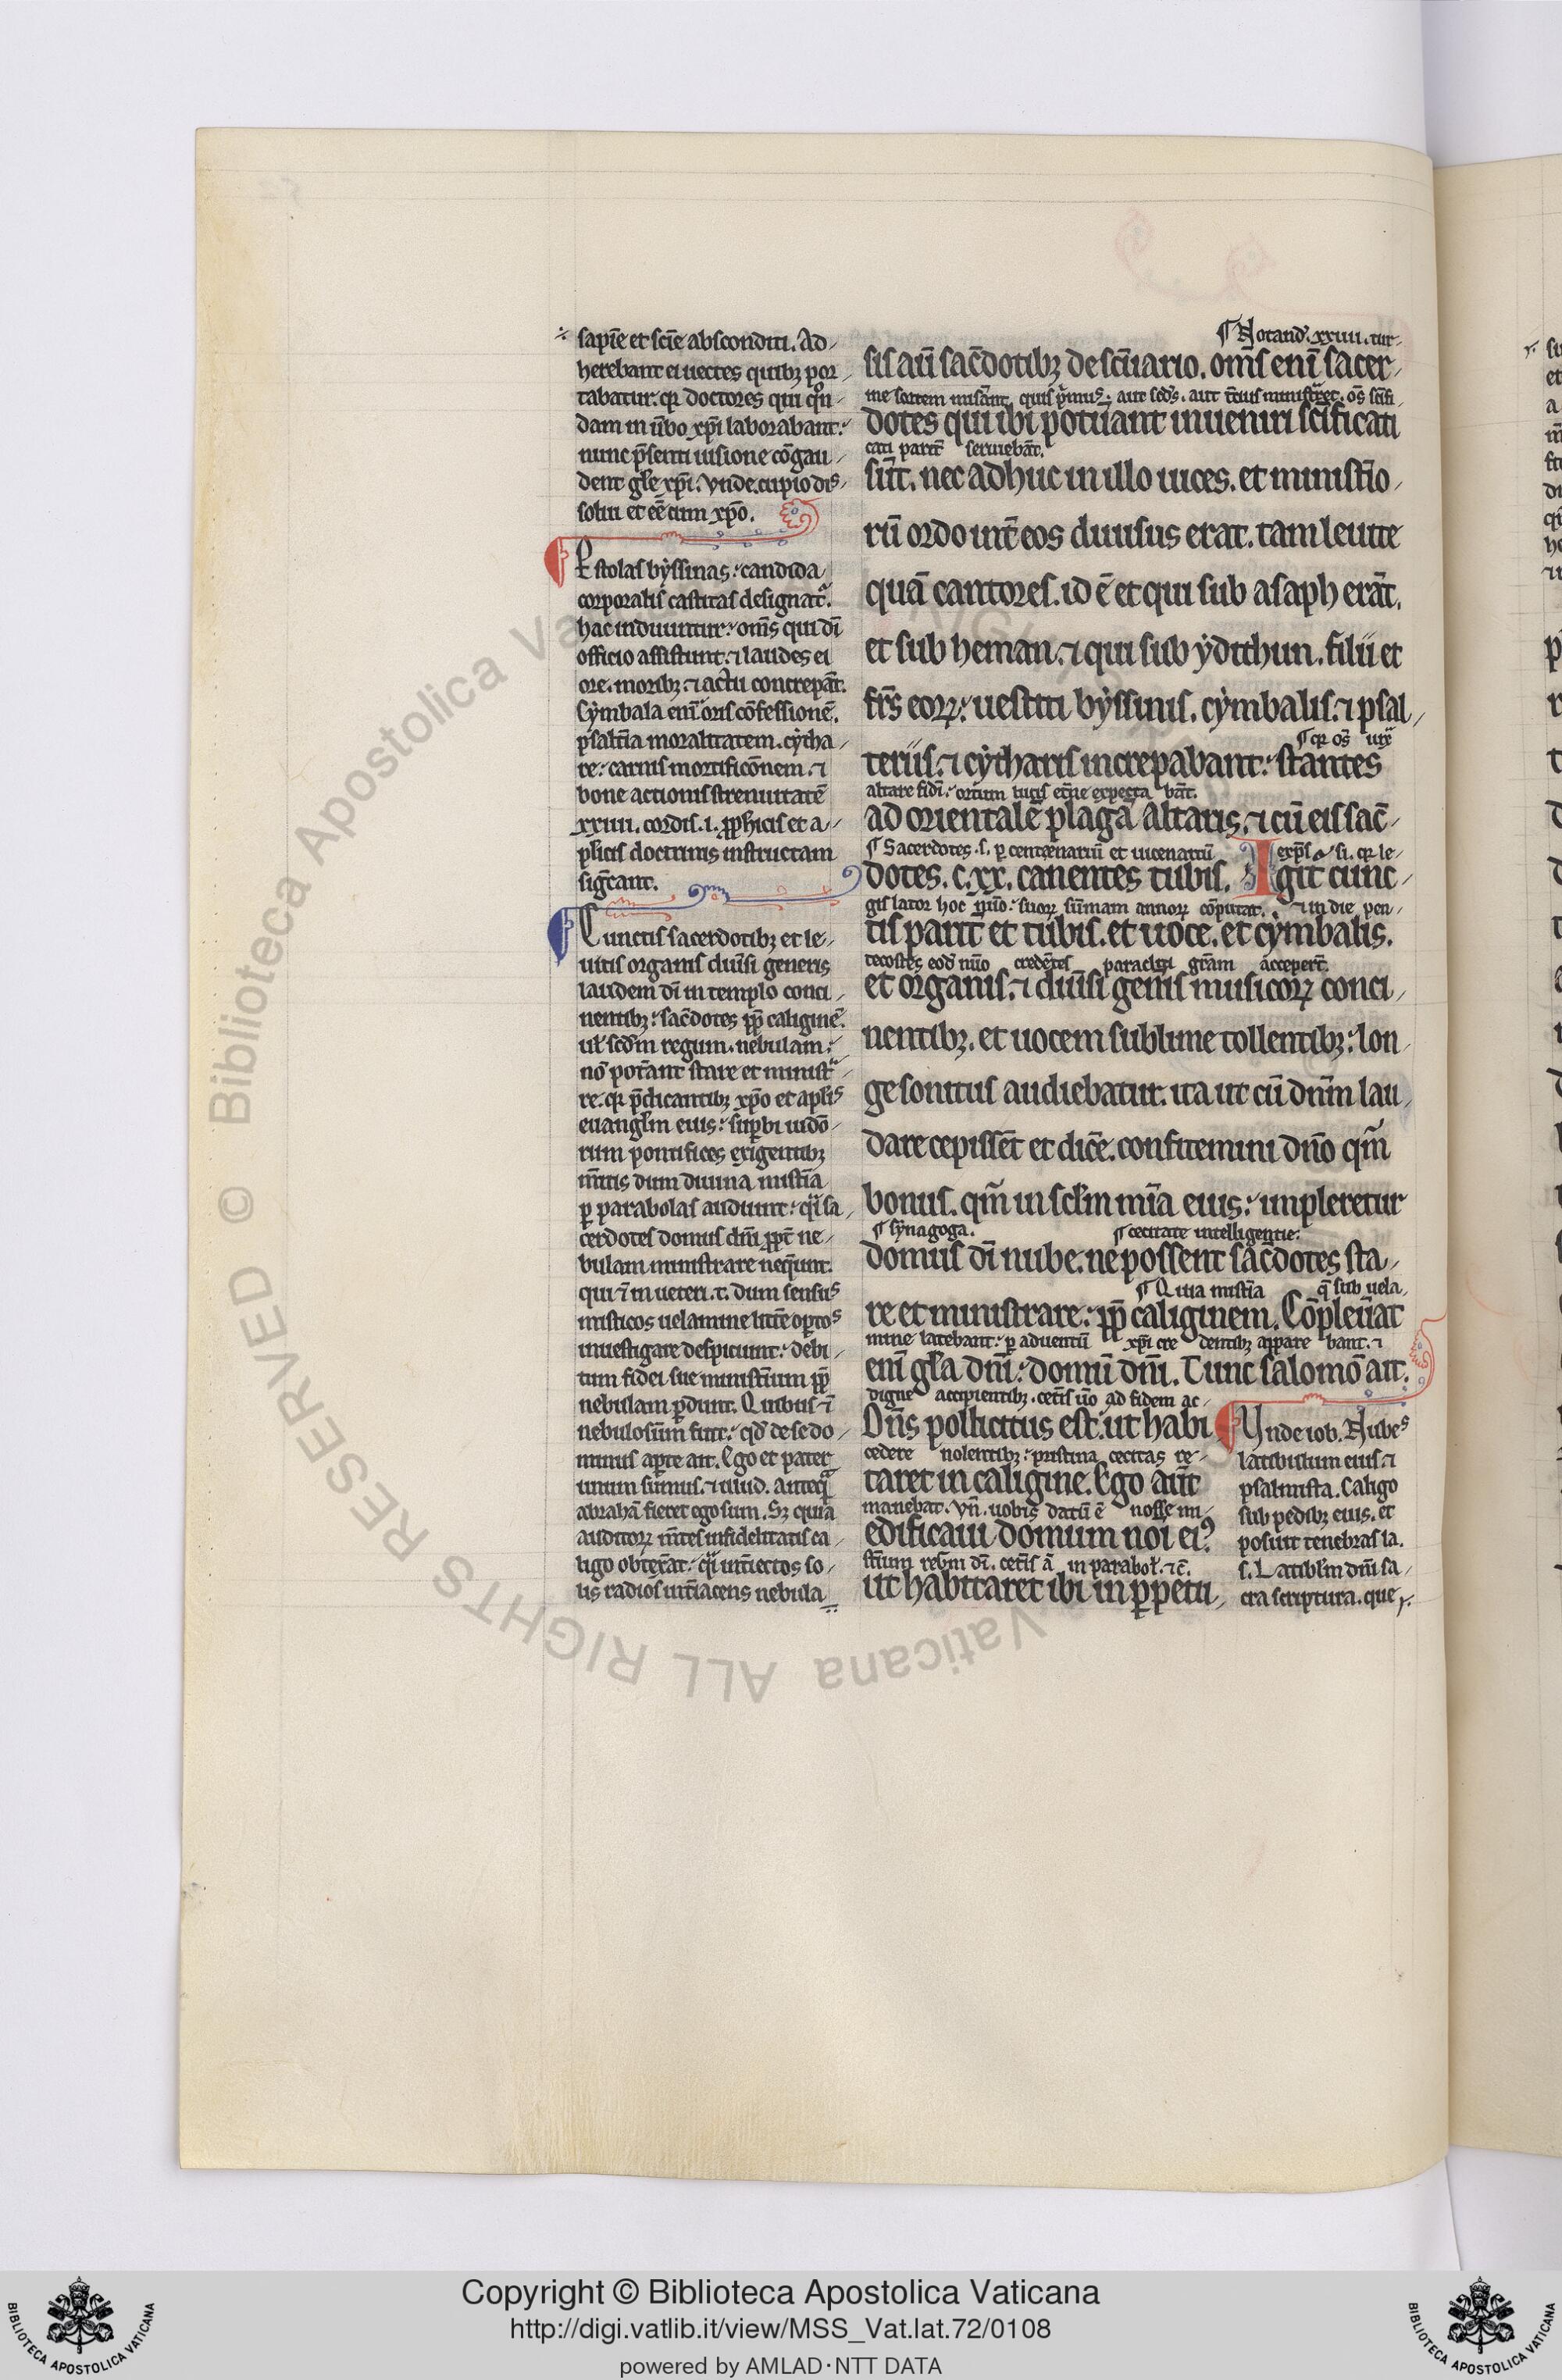 sapīe et scīe absconditi. Ad-
herebant ei uectes quibꝫ por-
tabatur. qꝛ doctores qui qͦn-
dam in ūbo xp̄i laborabant:
nunc p̄senti uisione cōgau-
dent gl̄e xp̄i. Vnde. cupio dis-
solui et eē cum xp̄o.
Per stolas byssinas: candida
corporalis castitas designat᷑.
hac induuntur: om̄s qui dī
officio assistunt. ⁊ laudes ei
ore. moribꝫ. ⁊ actu concrepāt.
Cymbala enī oris cōfessionē.
psaltīa moralitatem. cytha-
re: carnis mortificōnem. ⁊
bone actionis strenuitatē
xxiiii. cordis. i. ꝓphicis et a-
p̄licis doctrinis instructam
sigcānt.
Cunctis sacerdotibꝫ et le-
uitis organis diūsi generis
laudem dī in templo conci-
nentibꝫ: sac̄dotes ꝓp̄ caliginē.
ul̄ scd̄m regum. nebulam:
nō potāt stare et minist͛-
re. qꝛ p̄dicantibꝫ xp̄o et ap̄lis
euangl̄m eius: suꝑbi iudō-
rum pontifices exigentibꝫ
m̄itis dum diuina mist̄ia
ꝑ parabolas audiunt: qͥ sa-
cerdotes domus dn̄i ꝓpt̄ ne-
bulam ministrare neqͥunt.
qui ī in ueteri. t. dum sensus
misticos uelamine litīe opͭos
inuestigare despiciunt: debi-
tum fidei sue minist̄ium ꝓp̄
nebulam ꝑdunt. Quibus ī
nebulosūm fuit: qd̓ de se do-
minus aꝑte ait. Ego et pater
unum sumus. ⁊ illud. anteqᷓ
abrahā fieret ego sum. Sꝫ quia
auditorꝝ m̄tes infidelitatis ca-
ligo obtexāt: qͥ int̄iectos so-
lis radios int̄iacens nebula
¶ Notand̓. xxiiii. tur-
sis aūt sac̄dotibꝫ de sc̄uario. om̄s enī sacer-
me sortem misānt. quis pͥmus. aut scd̓s. aut t̄cius ministret. os̄ sc̄ifi-
dotes qui ibi potūant inueniri sc̄ificati
cati parit̄ seruiebāt.
sūt. nec adhuc in illo uices. et ministīo-
rū ordo int̄ eos diuisus erat. tam leuite
quā cantores. id ē et qui sub asaph erāt.
et sub heman. ⁊ qui sub yditthun. filii et
fr̄s eorꝝ: uestiti byssinis. cymbalis. ⁊ psal-
¶ qꝛ os̄ iux̄
teriis. ⁊ cytharis increpabant: stantes
altare fidī: ortum lucis et̄ne expecta bāt.
ad orientalē plagā altaris. ⁊ cū eis sac̄-
¶ Sacerdotes. s. ꝑ centenariū et uicenariū
dotes. c.xx. canentes tubis. Igit᷑ cunc-
gis lator hoc nūo: suorꝝ sūmam annorꝝ cōputat. ⁊ in die pen-
tis parit̄ et tubis. et uoce. et cymbalis.
tecostes eod̄ nūo credētes paracliti grām acceꝑt̄.
et organis. ⁊ diūsi gen̄is musicorꝝ conci-
nentibꝫ. et uocem sublime tollentibꝫ: lon-
ge sonitus audiebatur. ita ut cū dn̄m lau-
dare cepissēt et dic̄e. confitemini dn̄o qm̄
bonus. qm̄ in sc̄lm mīa eius: impleretur
¶ synagoga. ¶ cecitate intelligentie:
domus dī nube. ne possent sac̄dotes sta-
¶ Quia mist̄ia q̄ sub uela-
re et ministrare: ꝓp̄ caliginem. Cōpleūat
mine latebant: ꝑ aduentū xp̄i cre dentibꝫ appare bant. ⁊
enī gl̄a dn̄i: domū dn̄i. Tunc salomō ait.
digne accipientibꝫ. cet̄is ūo ad fidem ac-
Dn̄s pollicitus est: ut habi
cedere nolentibꝫ: pristina cecitas re-
taret in caligine. Ego aūt
manebat. Vn̄. uobis datū ē nosse mi-
edificaui domum noī eiꝰ
st̄ium regni dī. cet̄is ā in parabol̄. ⁊c̄.
ut habitaret ibi in ꝑpetu-
Vnde iob. Nubes
latibulum eius. ⁊
psalmista. Caligo
sub pedibꝫ eius. et
posuit tenebras la.
s. Latibl̄m dn̄i sa-
cra scriptura. que
Copyright © Biblioteca Apostolica Vaticana
http://digi.vatlib.it/view/MSS_Vat.lat.72/0108
powered by AMLAD·NTT DATA
BIBLIOTECA APOSTOLICA VATICANA
BIBLIOTECA APOSTOLICA VATICANA
© Biblioteca Apostolica Vaticana ALL RIGHTS RESERVED